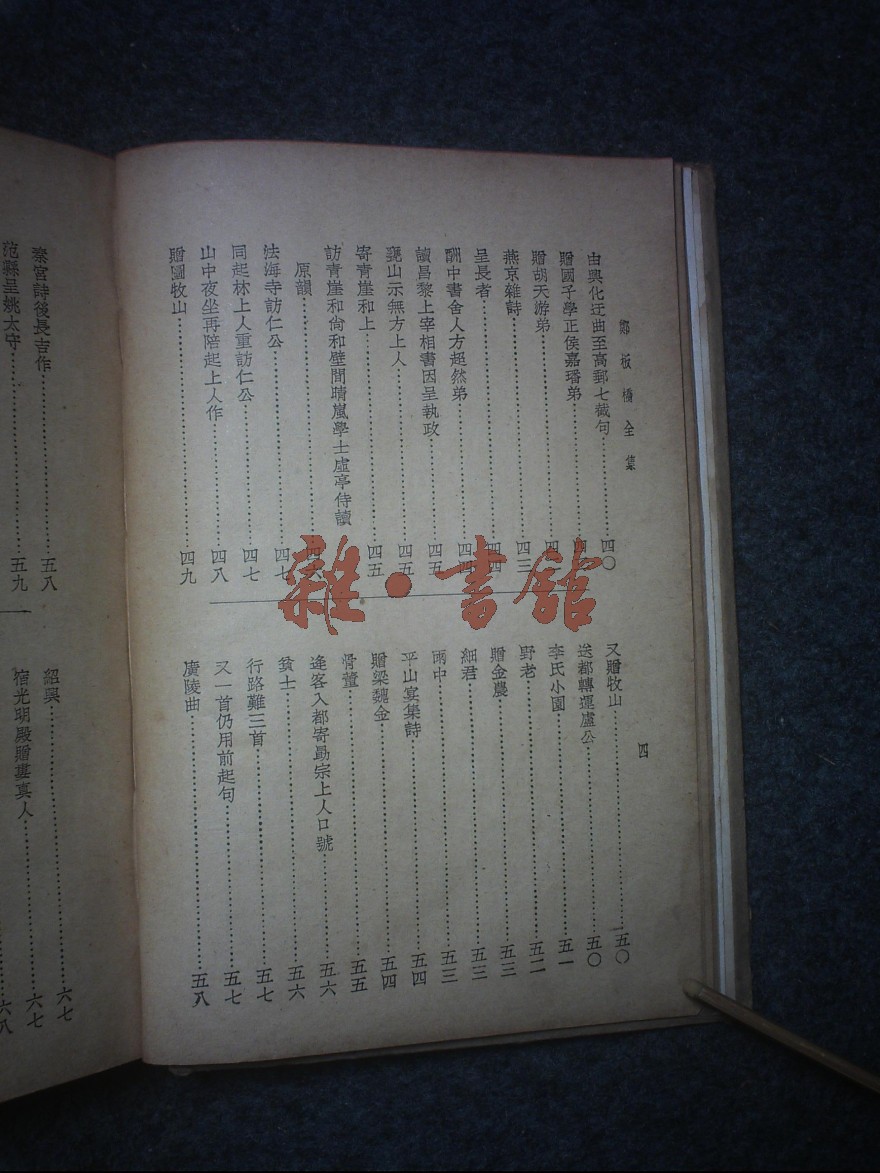 鄭板橋全集
由興化迂曲至高郵七截句⋯⋯四〇
贈國子學正侯嘉璠弟⋯⋯四
贈胡天游弟⋯⋯四
燕京雜詩⋯⋯四三
呈長者⋯⋯四四
酬中書舍人方超然弟⋯⋯四四
讀昌黎上宰相書因呈執政⋯⋯四五
甕山示無方上人⋯⋯四五
寄青崖和上⋯⋯四五
訪青崖和尙和壁間晴嵐學士虛亭侍讀
原韻⋯⋯四六
法海寺訪仁公⋯⋯四七
同起林上人重訪仁公⋯⋯四七
山中夜坐再陪起上人作⋯⋯四八
贈圖牧山⋯⋯四九
四
又贈牧山⋯⋯五〇
送都轉運盧公⋯⋯五〇
李氏小園⋯⋯五一
野老⋯⋯五二
贈金農⋯⋯五三
細君⋯⋯五三
雨中⋯⋯五三
平山宴集詩⋯⋯五四
贈梁魏金⋯⋯五四
骨董⋯⋯五五
逢客入都寄勗宗上人口號⋯⋯五六
貧士⋯⋯五六
行路難三首⋯⋯五七
又一首仍用前起句⋯⋯五七
廣陵曲⋯⋯五八
秦宮詩後長吉作⋯⋯五八
范縣呈姚太守⋯⋯五九
紹興⋯⋯六七
宿光明殿贈婁真人⋯⋯六七
六八
雜·書館